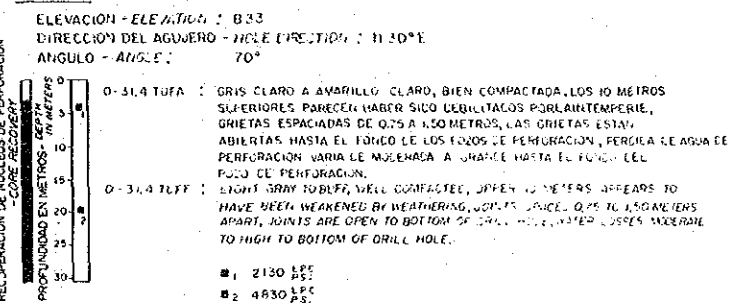 ELEVACIÓN - ELEVATION : 833
DIRECCIÓN DEL AGUJERO - HOLE DIRECTION : N 30° E
ANGULO - ANGLE : 70°
RECUPERACIÓN DE NÚCLEOS DE PERFORACIÓN
- CORE RECOVERY
PROFUNDIDAD EN METROS - DEPTH
IN METERS
0
5
10
15
20
25
30
1
2
0 - 31,4 TUFA : GRIS CLARO A AMARILLO CLARO, BIEN COMPACTADA, LOS 10 METROS
SUPERIORES PARECEN HABER SIDO DEBILITADOS POR LA INTEMPERIE,
GRIETAS ESPACIADAS DE 0,75 A 1,50 METROS, LAS GRIETAS ESTAN
ABIERTAS HASTA EL FONDO DE LOS POZOS DE PERFORACIÓN, PERDIDA DE AGUA DE
PERFORACIÓN VARIA DE MODERADA A GRANDE HASTA EL FONDO DEL
POZO DE PERFORACIÓN.
0 - 31,4 TUFF : LIGHT GRAY TO BUFF, WELL COMPACTED, UPPER 10 METERS APPEARS TO
HAVE BEEN WEAKENED BY WEATHERING, JOINTS SPACED 0,75 TO 1,50 METERS
APART, JOINTS ARE OPEN TO BOTTOM OF DRILL HOLE, WATER LOSSES MODERATE
TO HIGH TO BOTTOM OF DRILL HOLE.
1 2130 LPC PSI.
2 4830 LPC PSI.